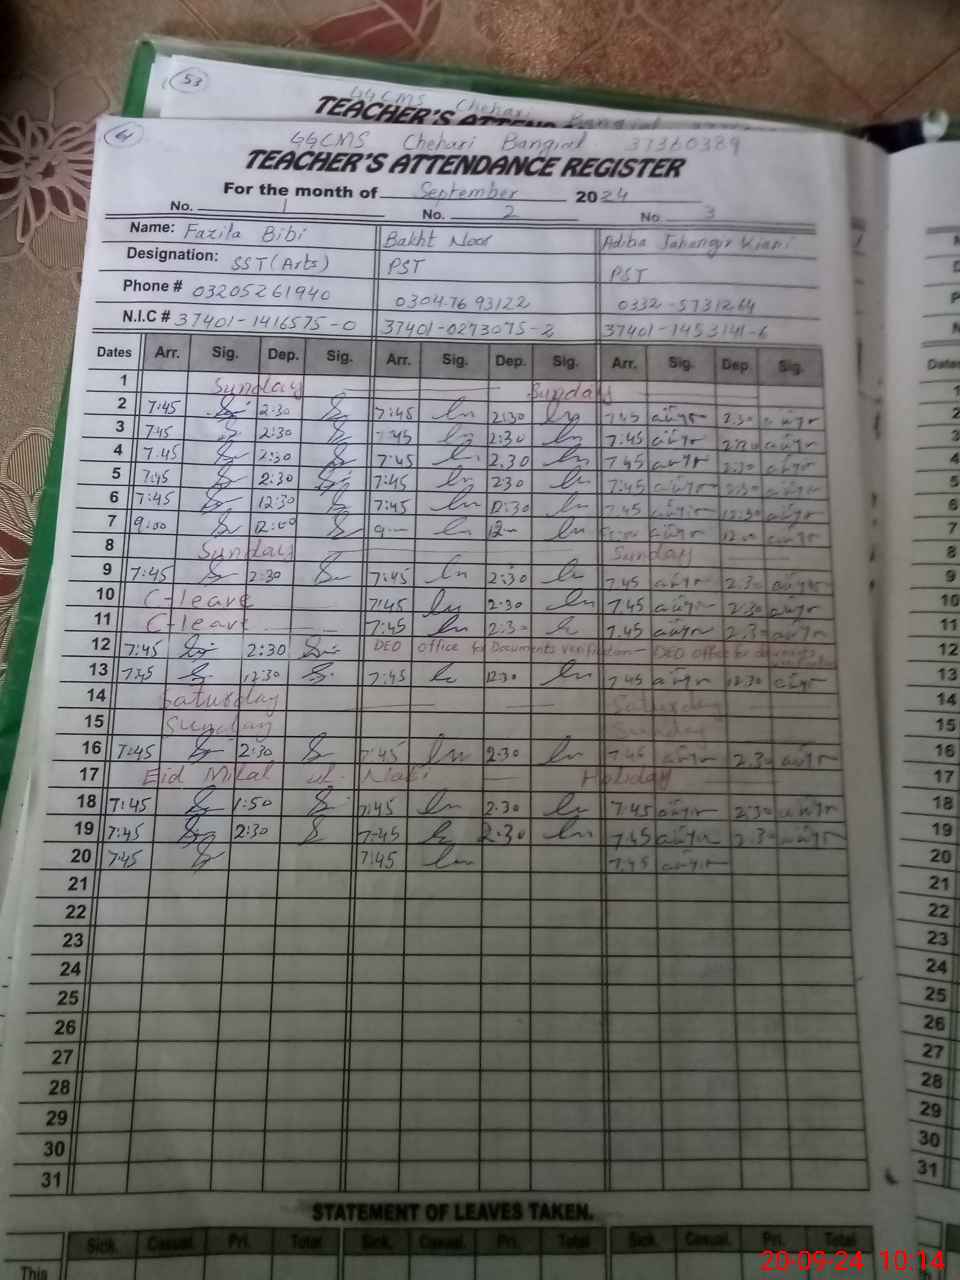 53
GGCMS Chehari Bangial
TEACHER'S
61
GGCMS Chehari Bangial 37360389
TEACHER'S ATTENDANCE REGISTER
For the month of September 2024
No. 1 No. 2 No 3
Name: Fazila Bibi Bakht Noor Adiba Jahangir Kiani
Designation: SST (Arts) PST PST
Phone # 03205261940 0304 76 93122 0332-5731264
N.I.C # 37401-1416575-0 37401-0273075-2 37401-1453141-6
Dates Arr. Sig. Dep. Sig. Arr. Sig. Dep. Sig. Arr. Sig. Dep. Sig.
1 Sunday Sunday
2 7:45 2:30 7:45 2:30 7:45 2:30
3 7:45 2:30 7:45 2:30 7:45 2:30
4 7:45 2:30 7:45 2.30 7.45 2:30
5 7:45 2:30 7:45 230 7:45 2:30
6 7:45 12:30 7:45 12:30 7.45 12:30
7 9:00 12:00 9 12 12:00
8 Sunday Sunday
9 7:45 2:30 7:45 2:30 7.45 2.30
10 C-leave 7:45 2:30 7.45 2.30
11 C-leave 7:45 2:30 7.45 2.30
12 7:45 2:30 DEO office for Documents verification DEO office for documents verification
13 7:45 12:30 7:45 1230 7.45 12.30
14 Saturday Saturday
15 Sunday Sunday
16 7:45 2:30 7:45 2:30 7.45 2.30
17 Eid Milad ul Nabi Holiday
18 7:45 1:50 7:45 2:30 7.45 2.30
19 7:45 2:30 7:45 2:30 7.45 2.30
20 7:45 7:45 7.45
21
22
23
24
25
26
27
28
29
30
31
STATEMENT OF LEAVES TAKEN.
Sick. Casual. Pri. Total Sick. Casual. Pri. Total Sick. Casual. Pri. Total
This
20-09-24 10:14